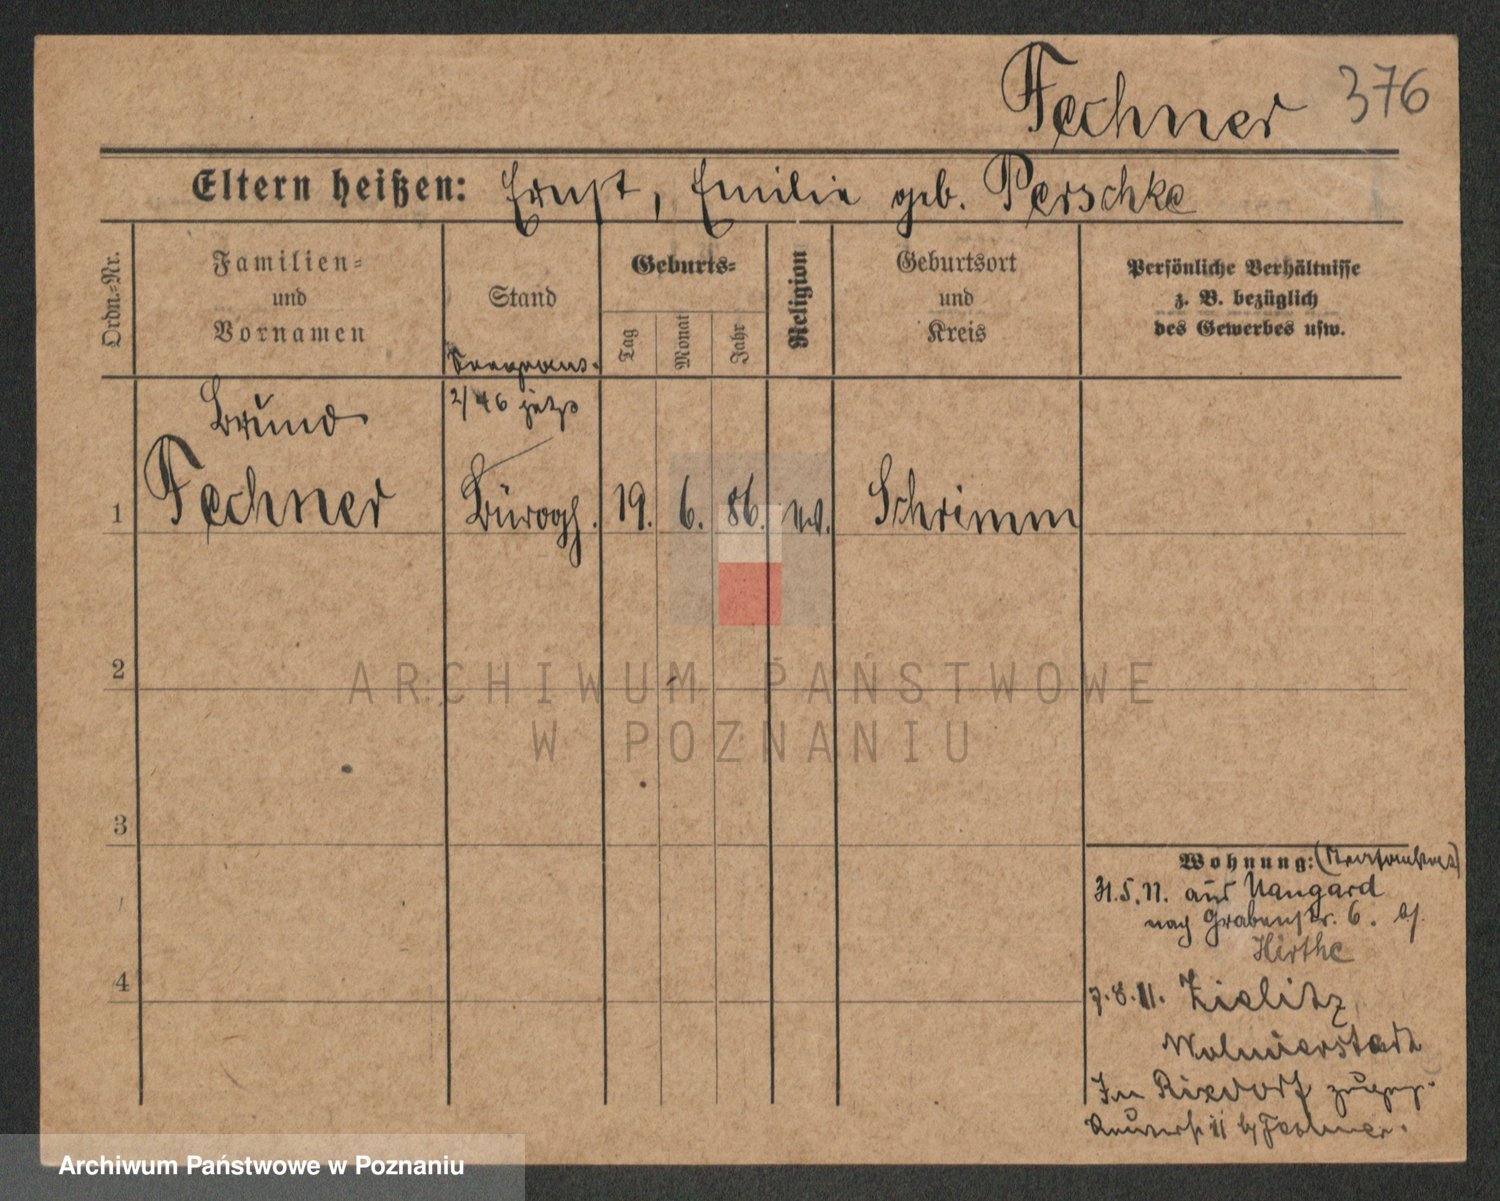 Fechner 376
Eltern heißen: Ernst, Emilie geb. Perschke
Ordn.-Nr.
Familien-
und
Vornamen
Stand
Geburts-
Tag
Monat
Jahr
Religion
Geburtsort
und
Kreis
Persönliche Verhältnisse
z. B. bezüglich
des Gewerbes usw.
2/46 jetzt
Bruno
1 Fechner Bürogh. 19. 6. 86. ev. Schrimm
2
3
4
Wohnung:
31.5.11. aus Naugard
nach Grabenstr. 6. bei
Hirthe
7.8.11. Zielitz
Wolmirstedt
In Rixdorf zugez.
11 bei Fechner.
ARCHIWUM PAŃSTWOWE
W POZNANIU
Archiwum Państwowe w Poznaniu